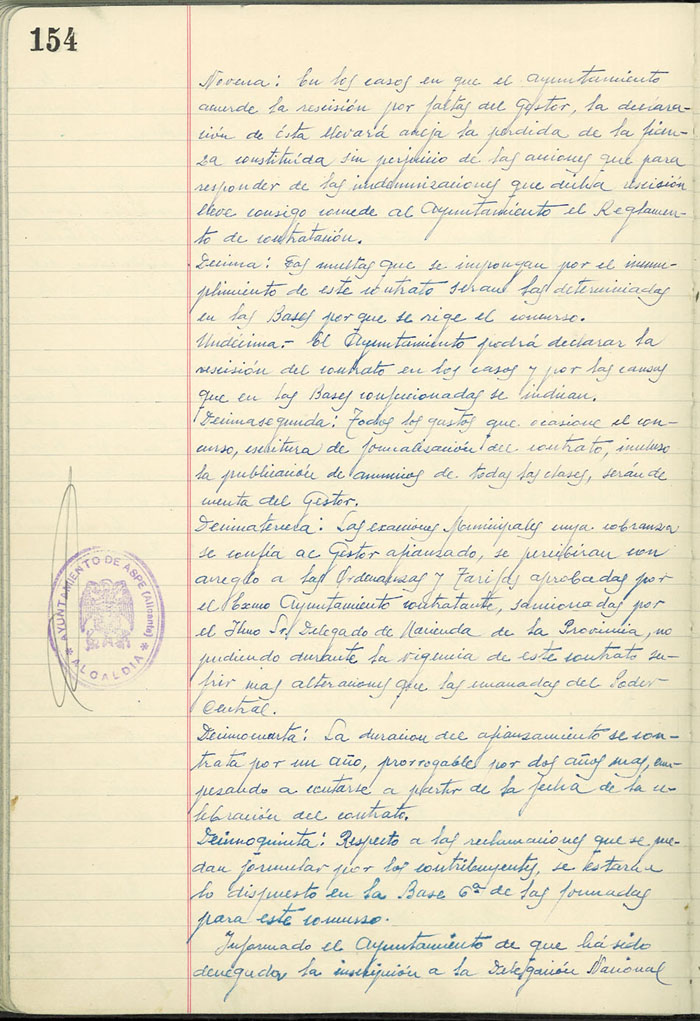 154
Novena: En los casos en que el Ayuntamiento
acuerde la rescisión por faltas del Gestor, la declara-
ción de ésta llevará aneja la perdida de la fian-
za constituída sin perjuicio de las acciones que para
responder de las indemnizaciones que dicha rescisión
lleve consigo concede al Ayuntamiento el Reglamen-
to de contratación.
Decima: Las multas que se impongan por el incum-
plimiento de este contrato seran las determinadas
en las Bases por que se rige el concurso.
Undécima.- El Ayuntamiento podrá declarar la
rescisión del contrato en los casos y por las causas
que en las Bases confeccionadas se indican.
Decimasegunda: Todos los gastos que ocasione el con-
curso, escritura de formalización del contrato, incluso
la publicación de anuncios de todas las clases, serán de
cuenta del Gestor.
Decimatercera: Las exacciones Municipales cuya cobranza
se confía al Gestor afianzado, se percibiran con
arreglo a las Ordenanzas y Tarifas aprobadas por
el Excmo Ayuntamiento contratante, sancionadas por
el Iltmo Sr. Delegado de Hacienda de la Provincia, no
pudiendo durante la vigencia de este contrato su-
frir mas alteraciones que las emanadas del Poder
Central.
Decimocuarta: La duracion del afianzamiento se con-
trata por un año, prorrogable por dos años mas, em-
pesando a contarse a partir de la fecha de la ce-
lebración del contrato.
Decimoquinta: Respecto a las reclamaciones que se pue-
dan formular por los contribuyentes, se estara a
lo dispuesto en la Base 6ª de las formadas
para este concurso.
Informado el Ayuntamiento de que ha sido
denegada la inscripción a la Delegación Nacional
AYUNTAMIENTO DE ASPE (Alicante)
* ALCALDIA *